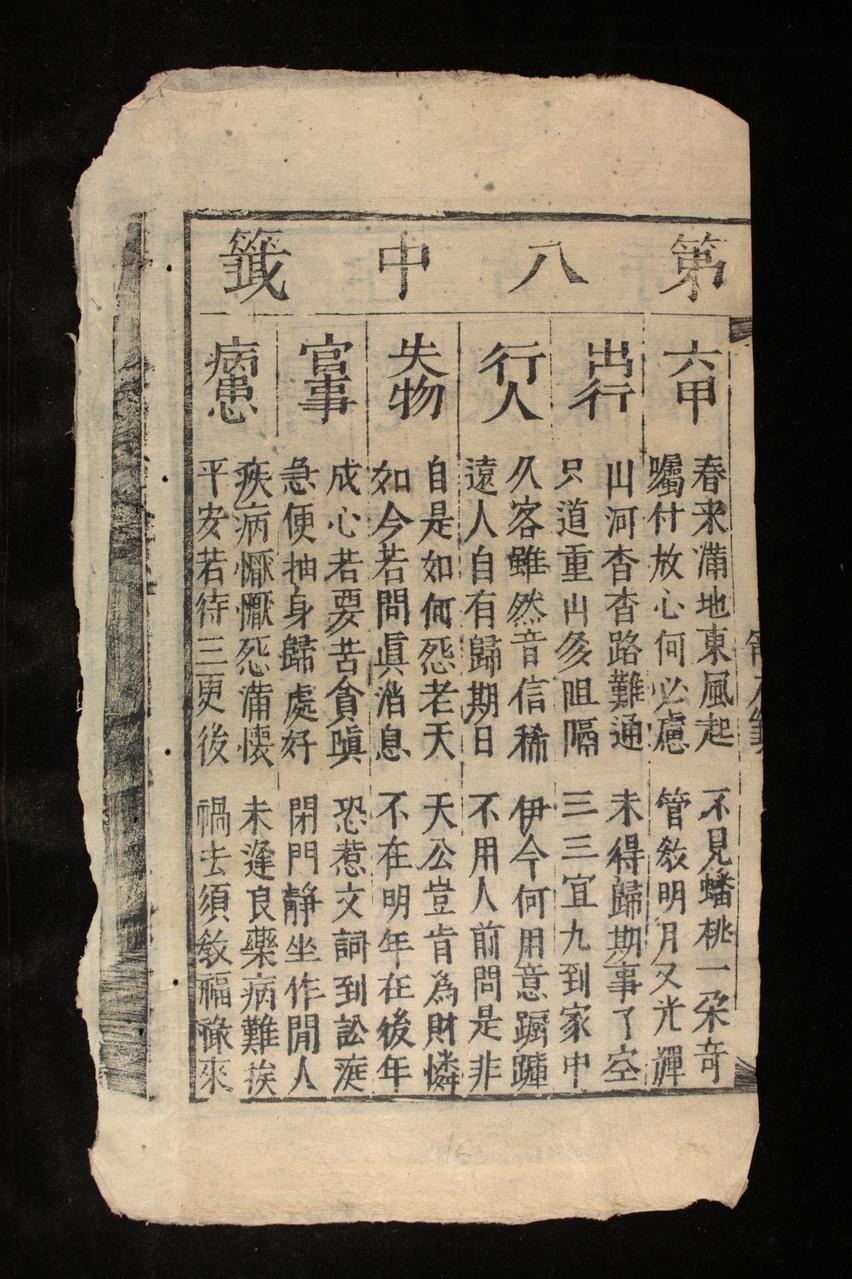 第八中籤
六甲
春来滿地東風起 不見蟠桃一朶竒
囑付放心何必慮 管教明月又光輝
出行
山河杳杳路難通 未得歸期事了空
只道重山多阻隔 三三宜九到家中
行人
久客雖然音信稀 伊今何用意躊躇
遠人自有歸期日 不用人前問是非
失物
自是如何怨老天 天公豈肯為財憐
如今若問眞消息 不在明年在後年
官事
成心若要苦貪嗔 恐惹文詞到訟庭
急便抽身歸處好 閉門靜坐作閒人
病患
疾病懨懨怨滿懐 未逢良藥病難挨
平安若待三更後 禍去須教福祿來